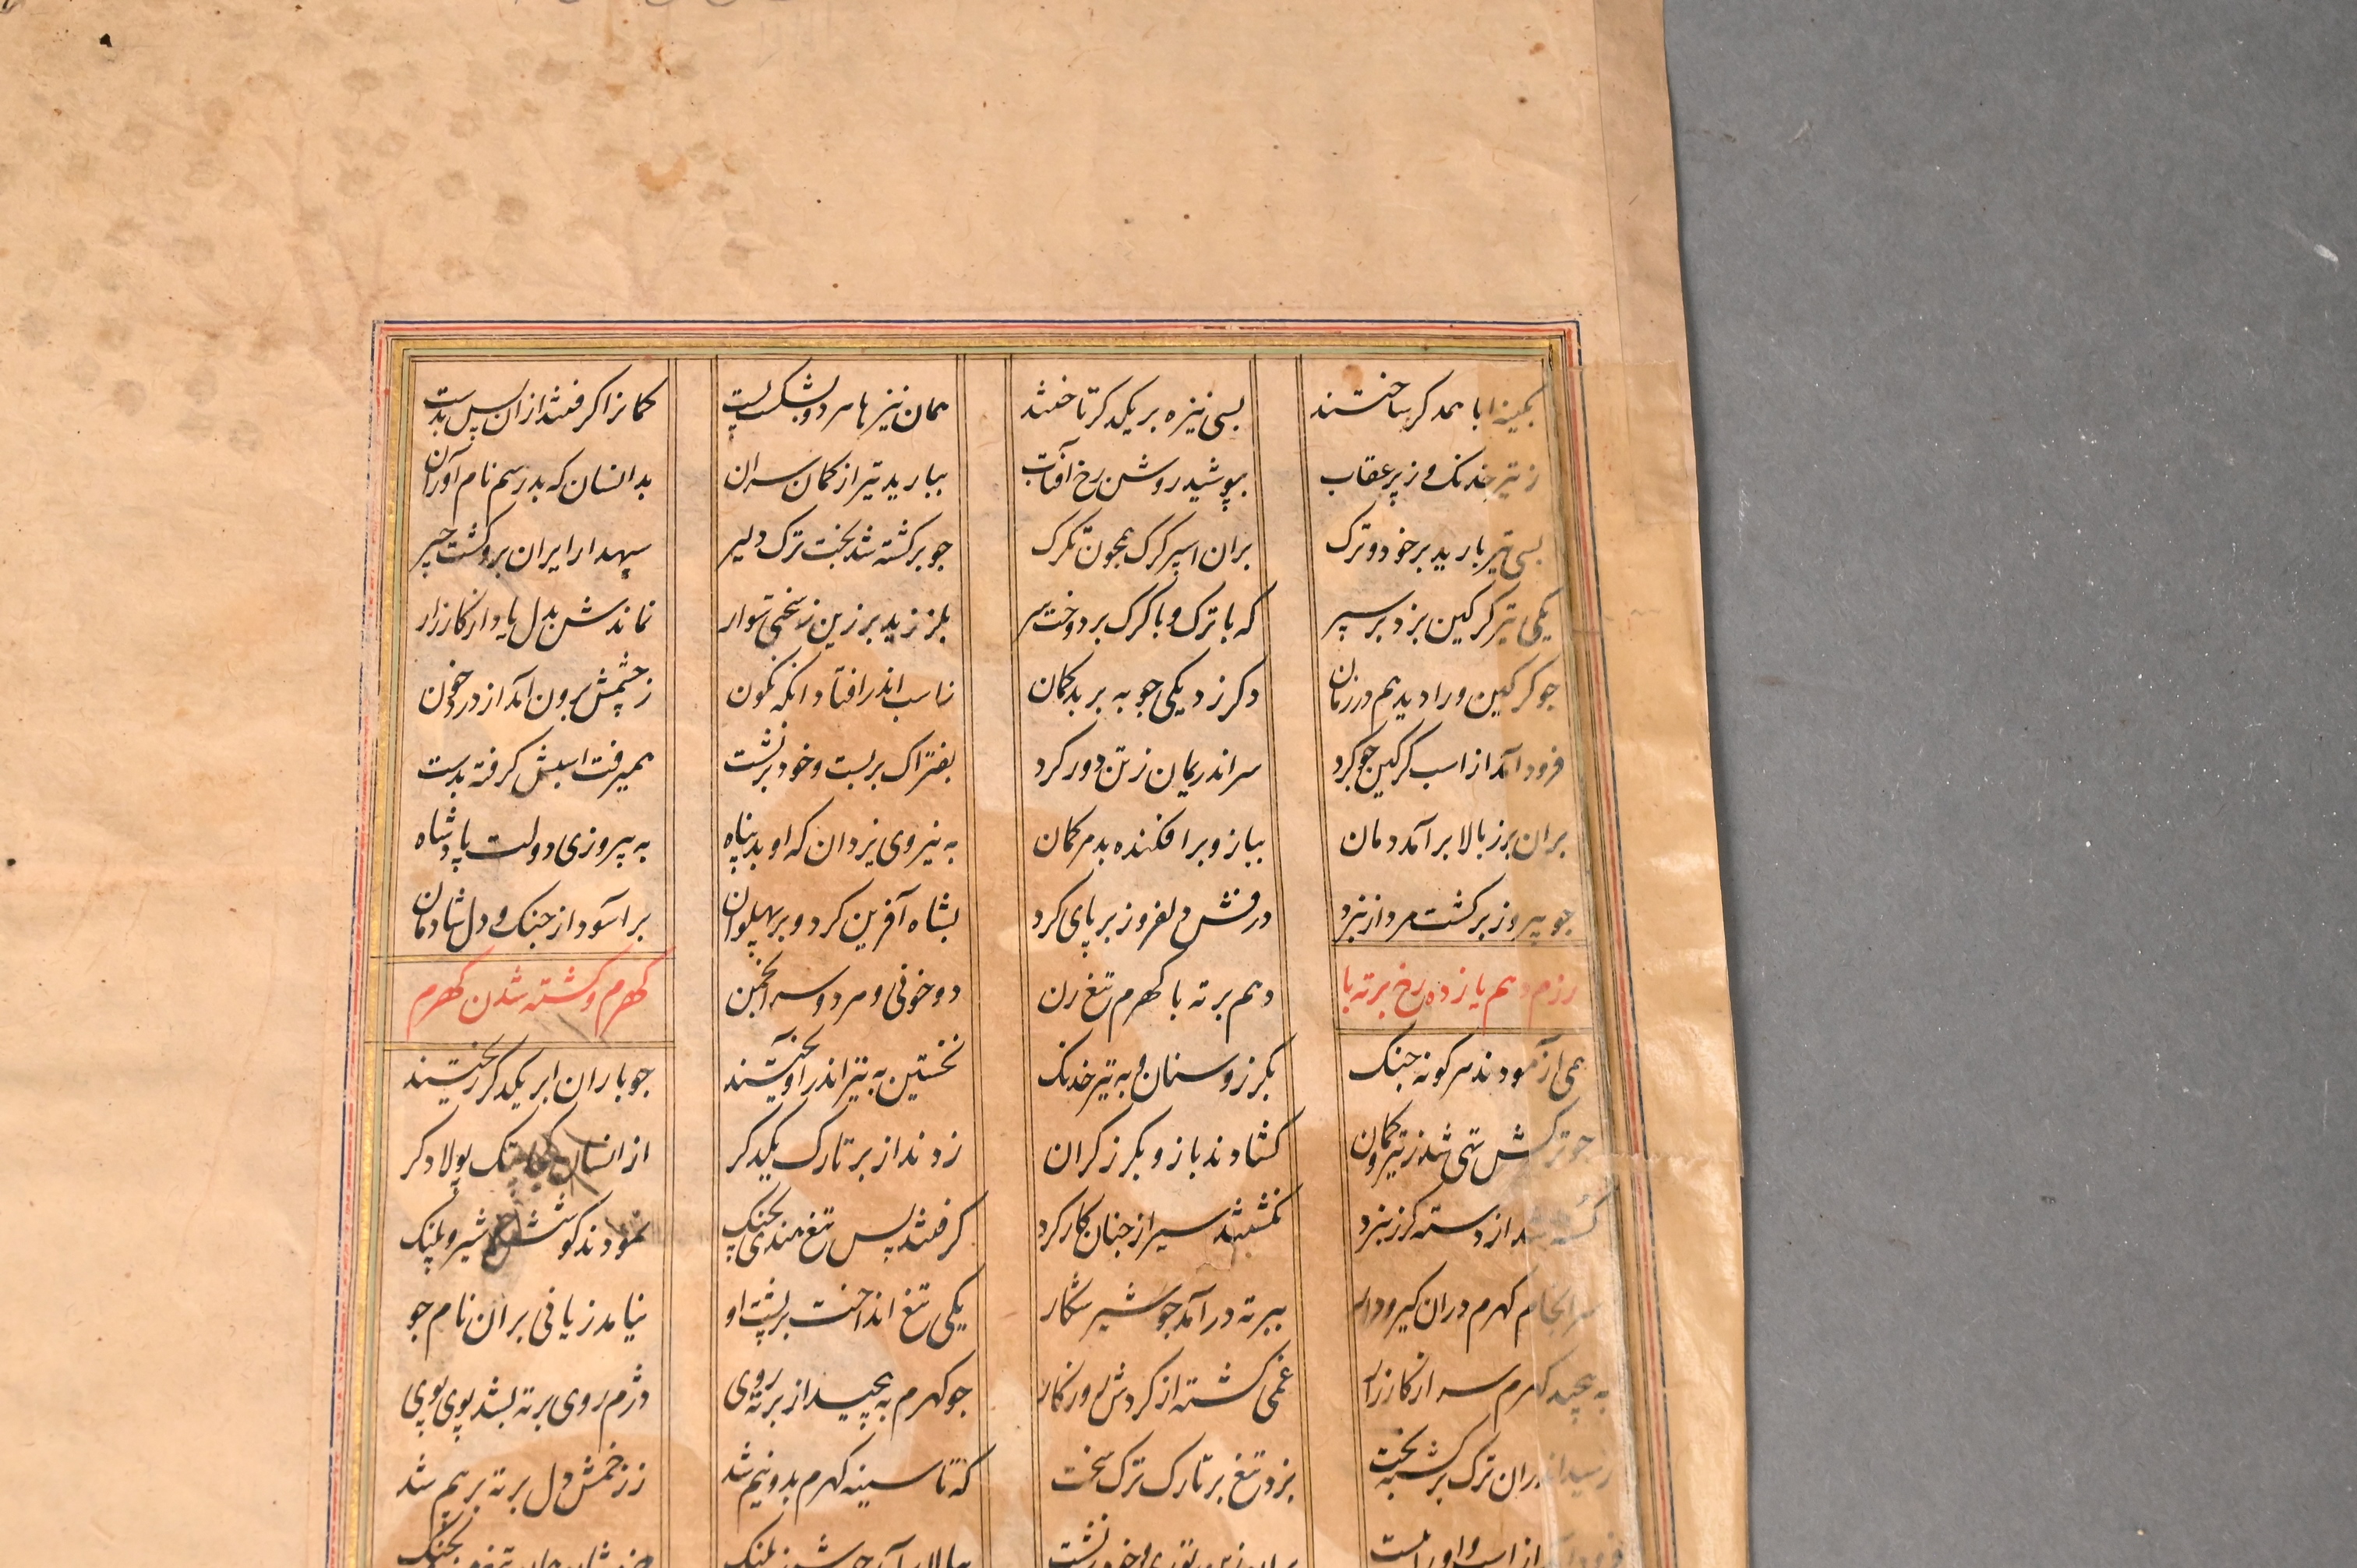 بکینه ابا همدکر ساختند بسی نیزه بر یکدکر تاختند همان نیزها هردو بشکست پست کمانرا کرفتند ازان پس بدست
ز تیر خدنک و ز پر عقاب بپوشید روشن رخ آفتاب ببارید تیر از کمان سران بدانسان که بد رسم نام آوران
بسی تیر بارید بر خود و ترک بران اسپر کرک همچون تکرک جو برکشته شد بخت ترک دلیر سپهدار ایران برو کشت چیر
یکی تیر کرکین بزد بر سپر که با ترک و با کرک بر دوخت سر بلرزید بر زین ز سختی سوار نماندش بدل یاد از کارزار
جو کرکین ورا دید هم در زمان دکر زد یکی جوبه بر بدکمان ز اسب اندر افتاد انکه نکون ز چشمش برون آمد از درد خون
فرود آمد از اسب کرکین جو کرد سر اندریمان ز تن دور کرد بفتراک بر بست و خود برنشست همیرفت اسبش کرفته بدست
بران برز بالا بر آمد دمان ببازو بر افکنده بد هم کمان به نیروی یزدان که او بد پناه به پیروزی دولت پادشاه
جو پیروز برکشت مرد از نبرد درفش دلفروز بر پای کرد بشاه آفرین کرد و بر پهلوان بر آسود از جنک و دل شادمان
رزم دهم یازده رخ برته با دهم برته با کهرم تیغ زن دو خونی و هر دو سر انجمن کهرم و کشته شدن کهرم
همی آزمودند هرکونه جنک بکرز و سنان و به تیر خدنک نخستین به تیر اندر آویختند جو باران ابر یکدکر ریختند
جو ترکش تهی شد ز تیر و کمان کشادند بازو بکرز کران زدند از بر تارک یکدکر از انسان که با پتک پولادکر
شد از دسته کرز نبرد نکشتند سیر از جنان کارکرد کرفتند پس تیغ هندی بجنک نمودند کوشش شیر و پلنک
سرانجام کهرم دران کیر و دار ببرته در آمد جو شیر شکار یکی تیغ انداخت بر پشت او نیامد زیانی بران نام جو
به پیچید کهرم سر از کارزار غمی کشته از کردش روزکار جو کهرم به پیچید از برته روی دژم روی برته بشد پوی پوی
رسید اندران ترک برکشته بخت بزد تیغ بر تارک ترک سخت که تا سینه کهرم بدونیم شد ز زخمش دل برته بر بیم شد